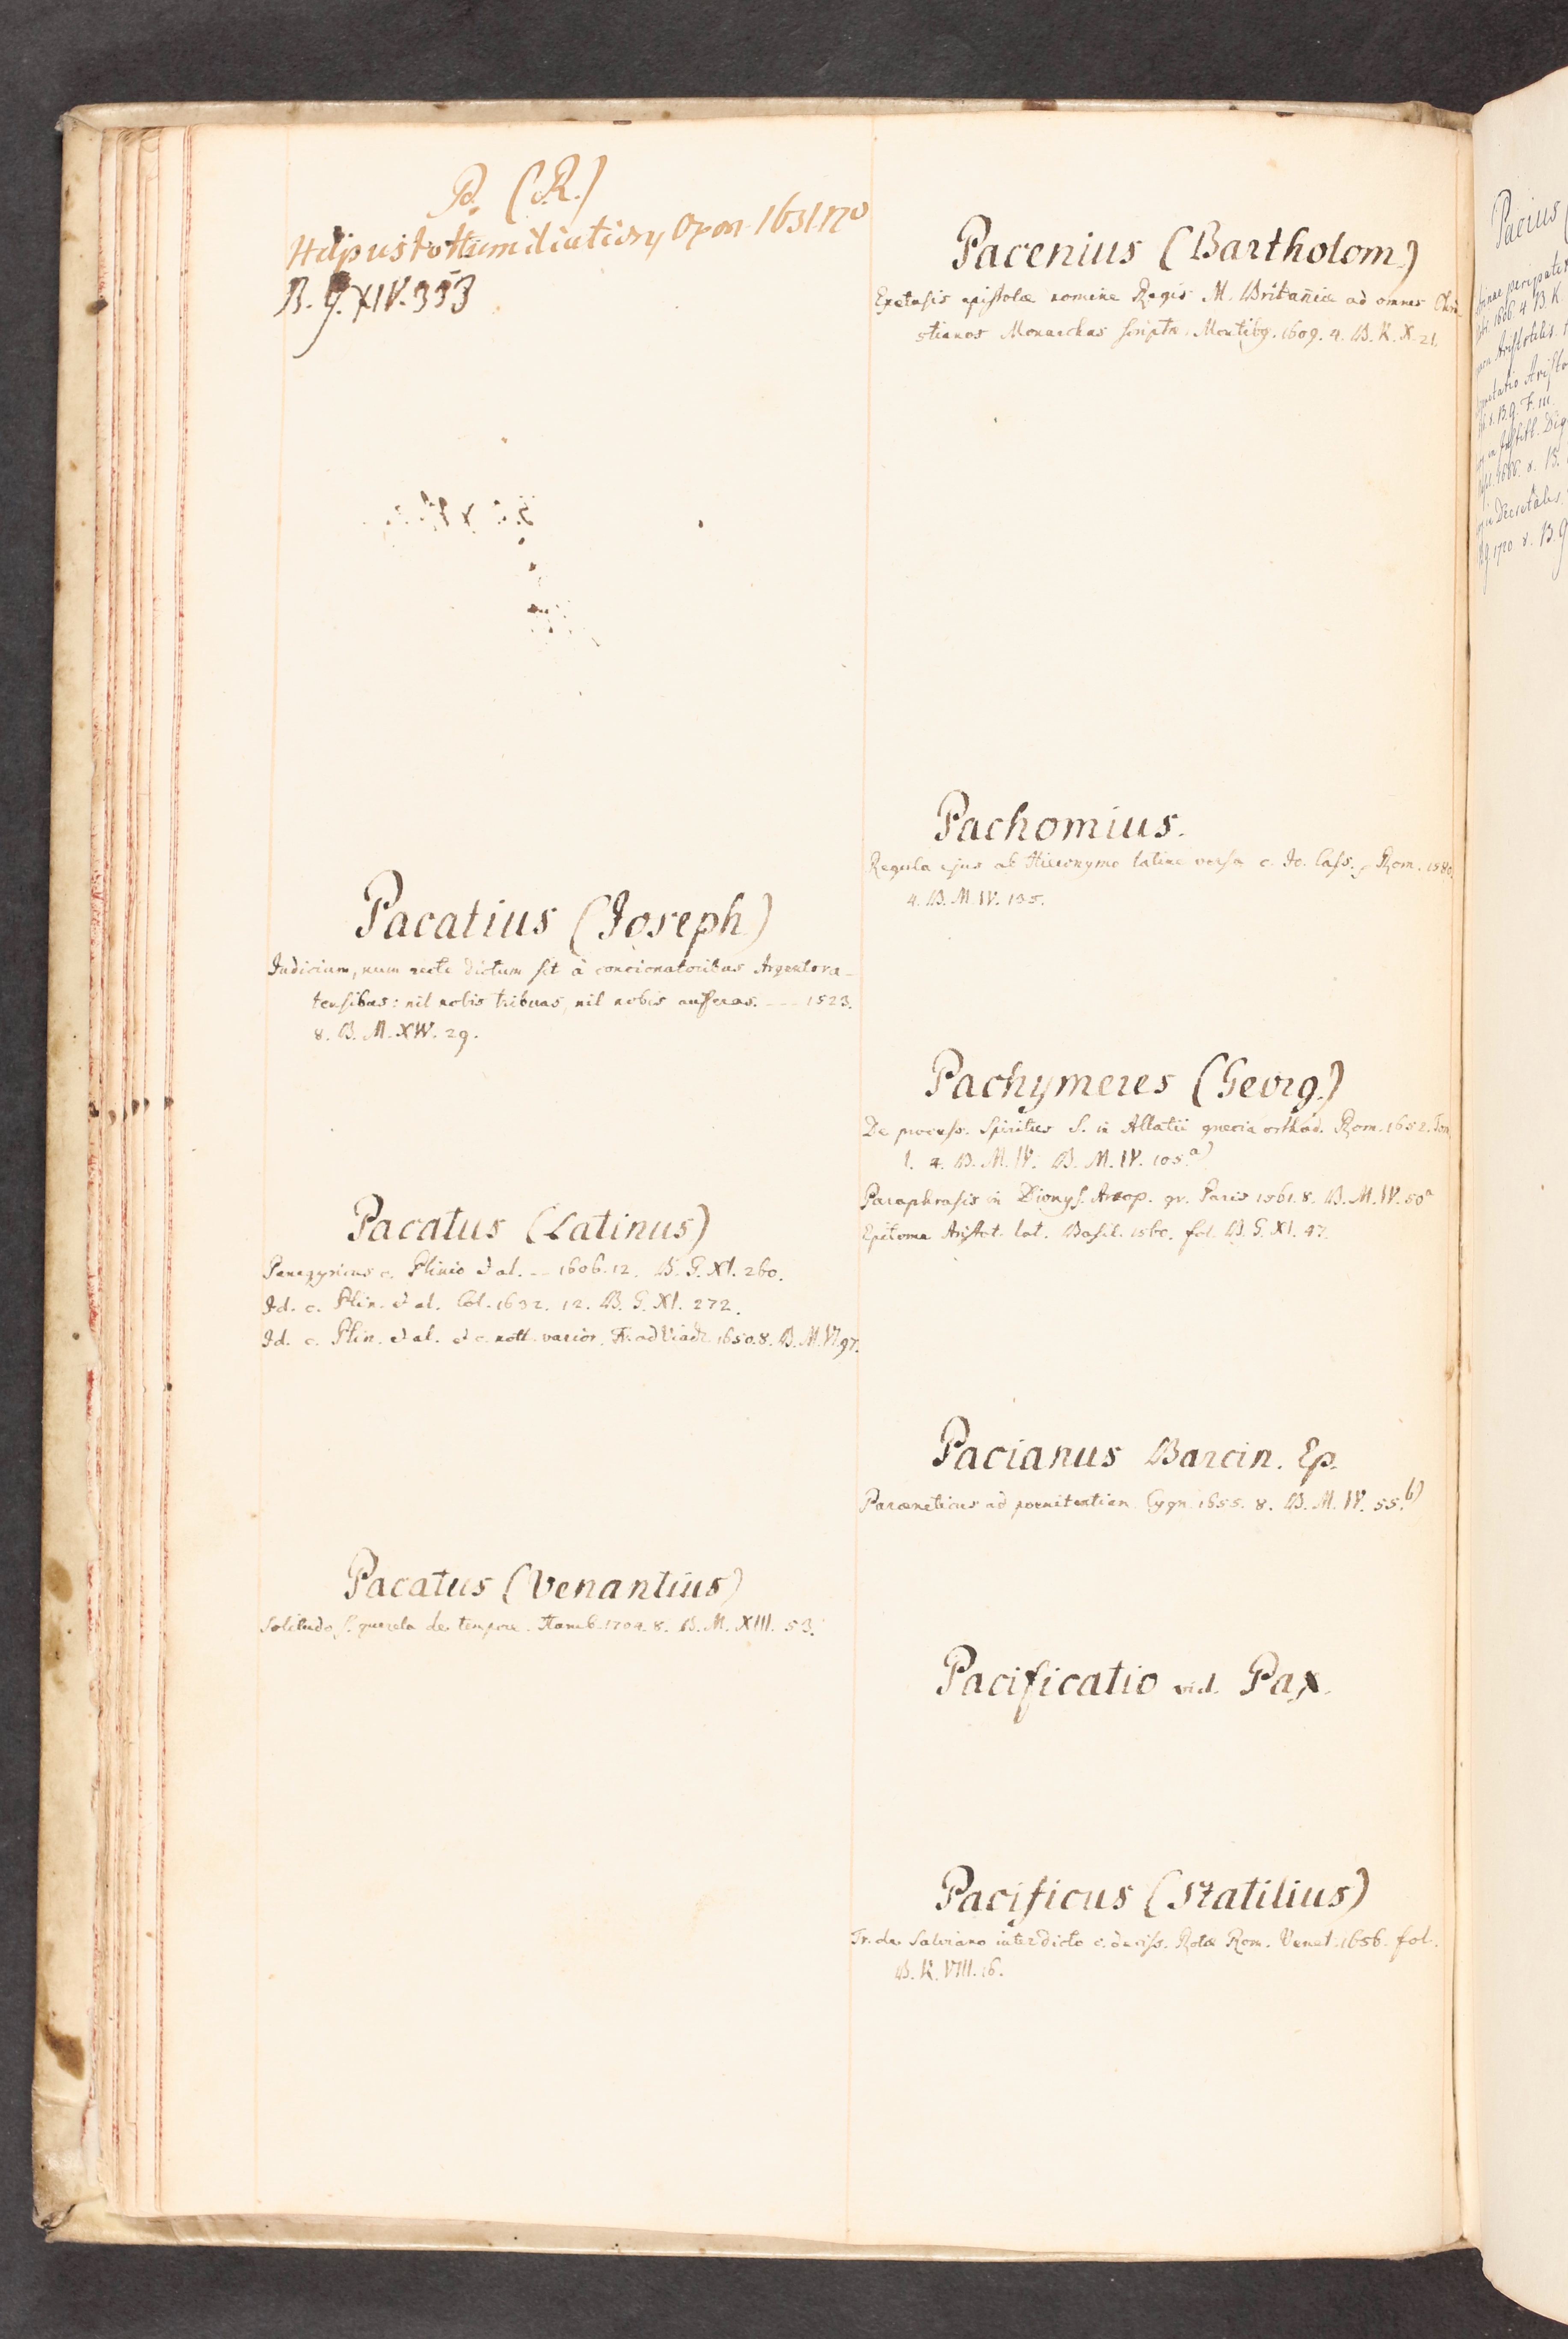 P. (R.)
Helpes to Humiliation Oxon 1631. 12º
B. G. XIV. 353
Pacatius (Joseph)
Judicium, num recte dictum sit à concionatoribus Argentora-
tensibus: nil nobis tribuas, nil nobis auferas. --- 1523.
8. B. M. XIV. 29.
Pacatus (Latinus)
Panegyricus c. Plinio & al. -- 1606. 12. B. G. XI. 260.
Id. c. Plin. & al. Col. 1632. 12. B. G. XI. 272.
Id. c. Plin. & al. & c. nott. varior. Fr. ad Viadr. 1650. 8. B. M. VI. 97.
Pacatus (Venantius)
Solitudo s. querela de tempore. Hamb. 1704. 8. B. M. XIII. 53.
Pacenius (Bartholom.)
Exetasis epistolæ nomine Regis M. Britañiæ ad omnes Chri-
stianos Monarchas scriptæ. Montibg. 1609. 4. B. K. X. 21.
Pachomius.
Regula ejus ab Hieronymo latine versa c. Jo. Cass. Rom. 1580.
4. B. M. IV. 135.
Pachymeres (Georg.)
De process. Spiritus S. in Allatii græcia orthod. Rom. 1652. Tom
1. 4. B. M. IV. B. M. IV. 105.a)
Paraphrasis in Dionys. Areop. gr. Paris 1561. 8. B. M. IV. 50a
Epitoma Aristot. lat. Basil. 1560. fol. B. G. XI. 47.
Pacianus Barcin. Ep.
Paræneticus ad poenitentiam. Cygn. 1655. 8. B. M. IV. 55.b)
Pacificatio vid. Pax.
Pacificus (Statilius)
Tr. de Salviano interdicto c. deciss. Rotæ Rom. Venet. 1656. fol.
B. K. VIII. 16.
Pacius (